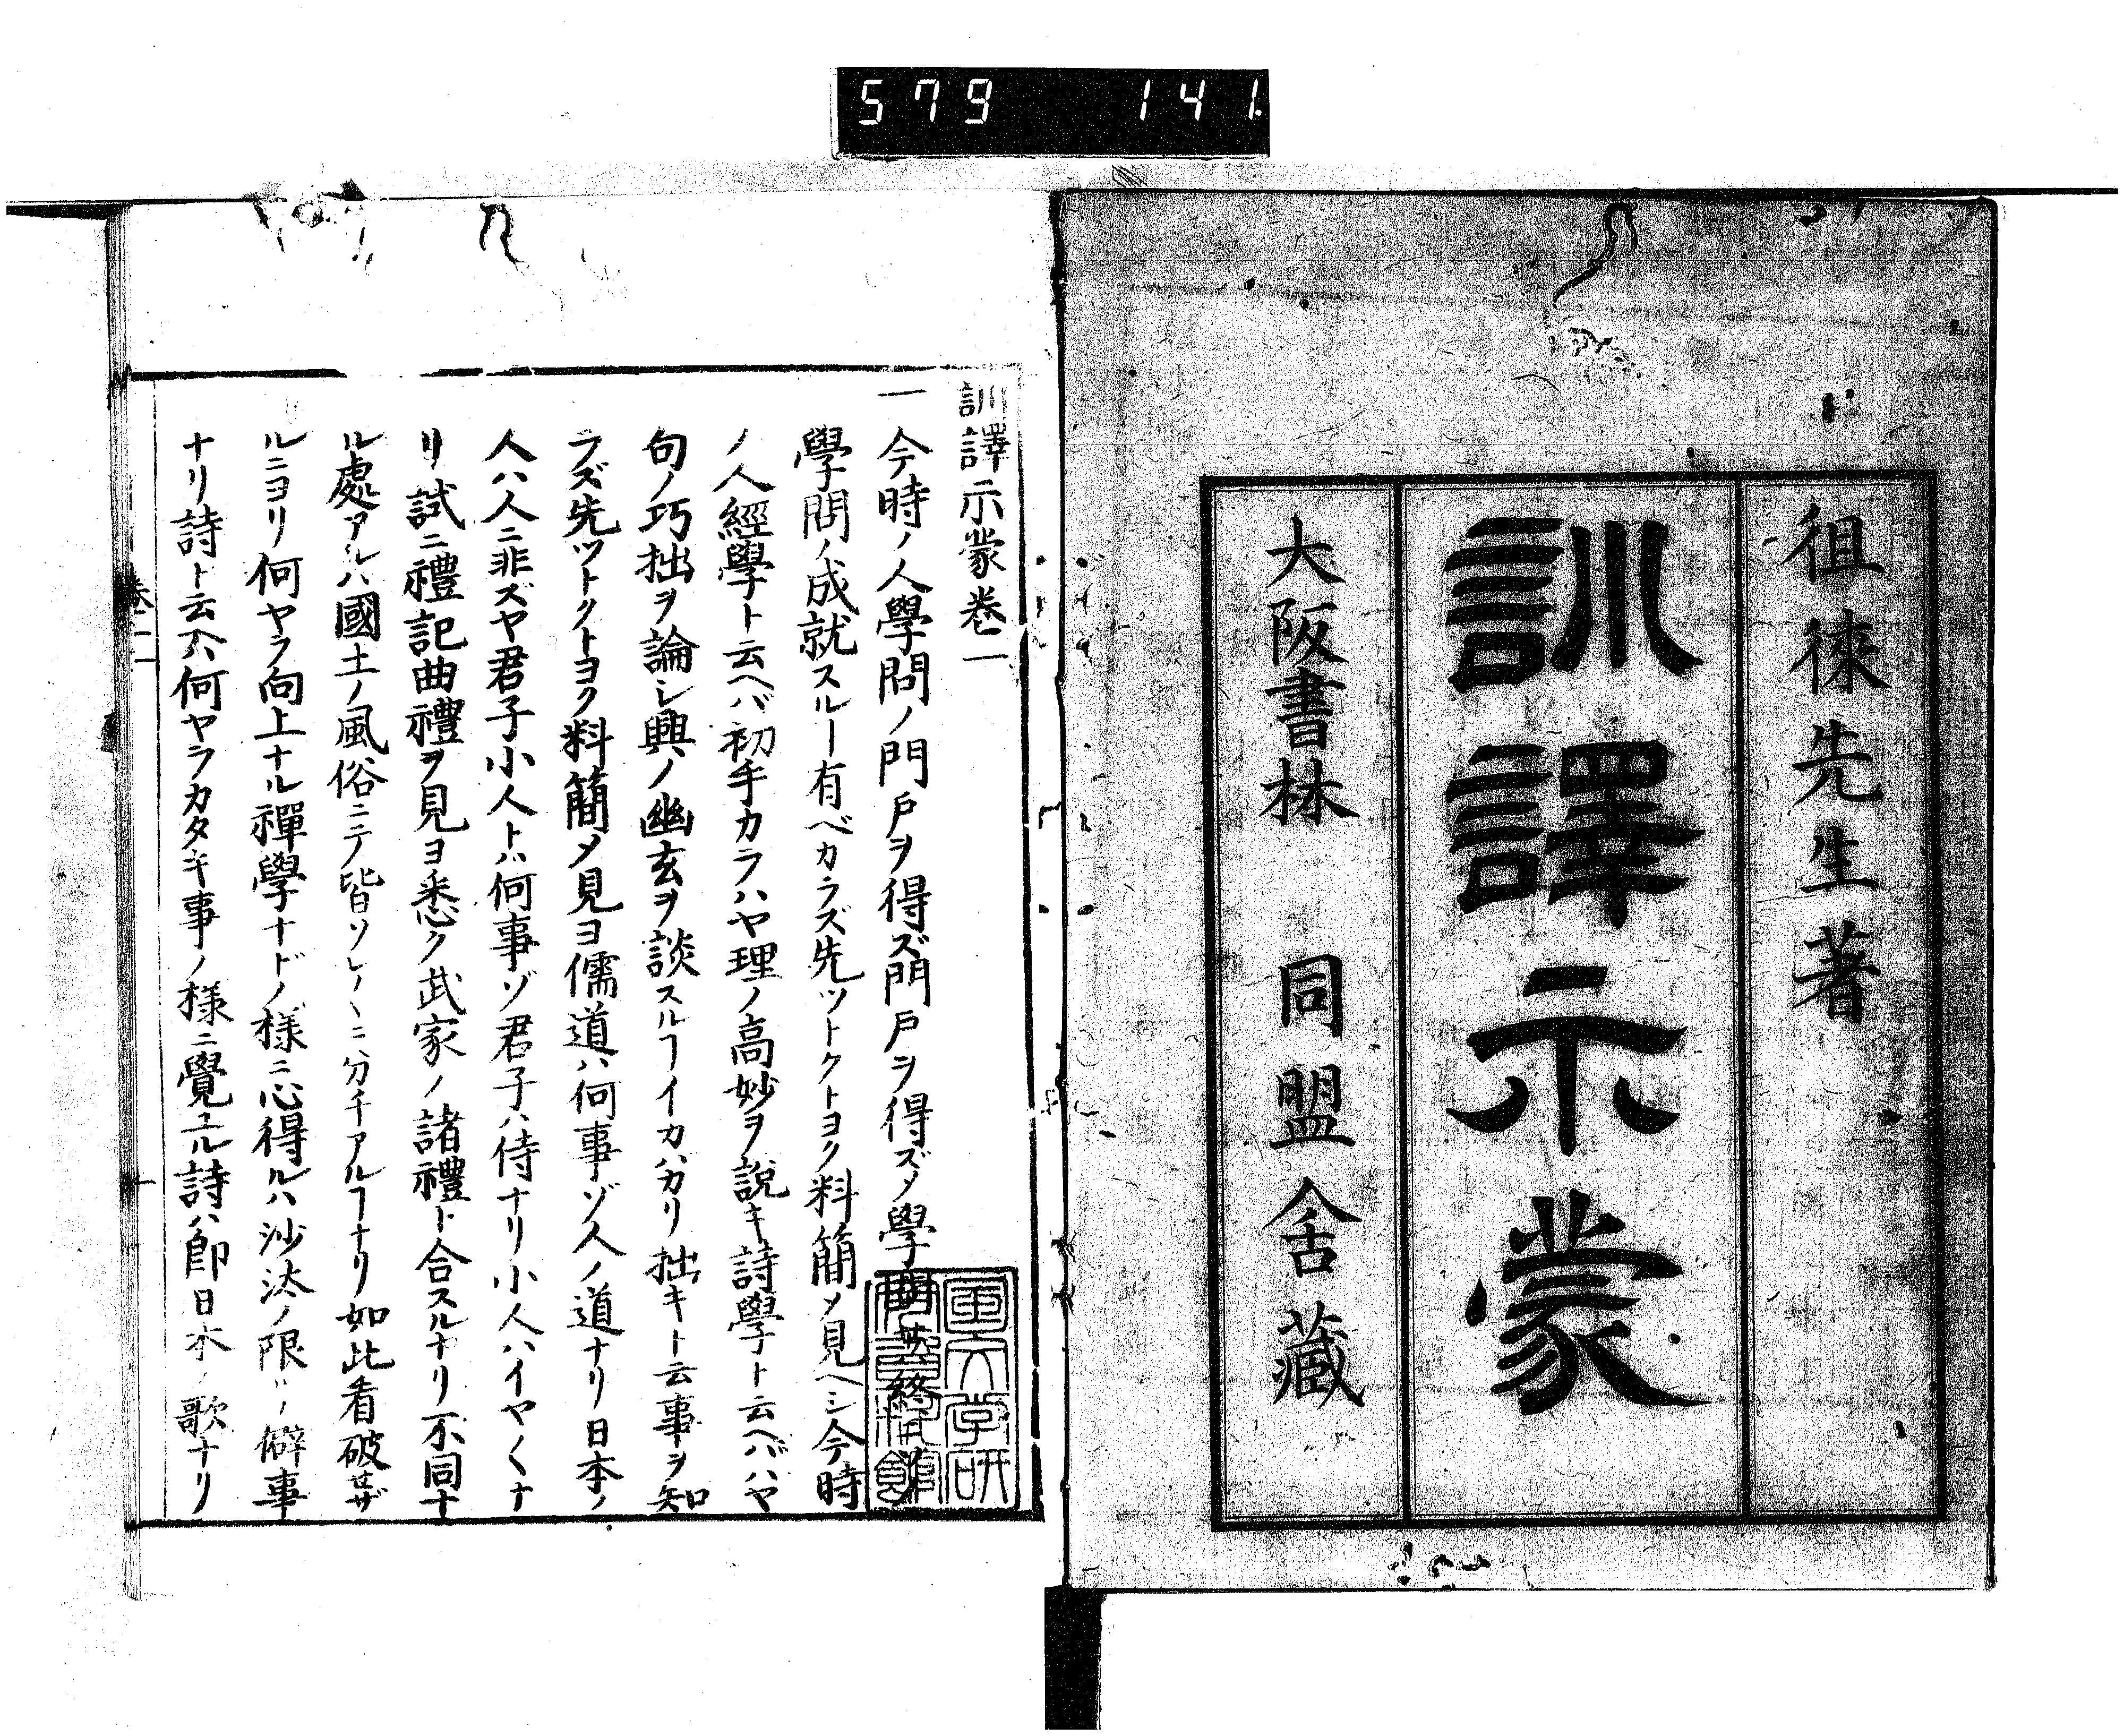 579 141.
徂徠先生著
訓譯示蒙
大阪書林 同盟舎藏
訓譯示蒙卷一
一今時ノ人學問ノ門戸ヲ得ズ門戸ヲ得ズメ學
學問ノ成就スルヿ有ベカラズ先ツトクトヨク料簡メ見ヘシ今時
ノ人經學ト云ヘバ初手カラハヤ理ノ高妙ヲ說キ詩學ト云ヘバハヤ
句ノ巧拙ヲ論シ興ノ幽玄ヲ談スルヿイカハカリ拙キト云事ヲ知
ラズ先ツトクトヨク料簡メ見ヨ儒道ハ何事ゾ人ノ道ナリ日本ノ
人ハ人ニ非ズヤ君子小人トハ何事ゾ君子ハ侍ナリ小人ハイヤ〱ナ
リ試ニ禮記曲禮ヲ見ヨ悉ク武家ノ諸禮ト合スルナリ不同ナ
ル處アルハ國土ノ風俗ニテ皆ソレ〱ニ分チアルヿナリ如此看破セザ
ルニヨリ何ヤラ向上ナル禪學ナドノ樣ニ心得ルハ沙汰ノ限リノ僻事
ナリ詩ト云ハ何ヤラカタキ事ノ樣ニ覺ユル詩ハ卽日本ノ歌ナリ
卷一
國文学研
究資料館